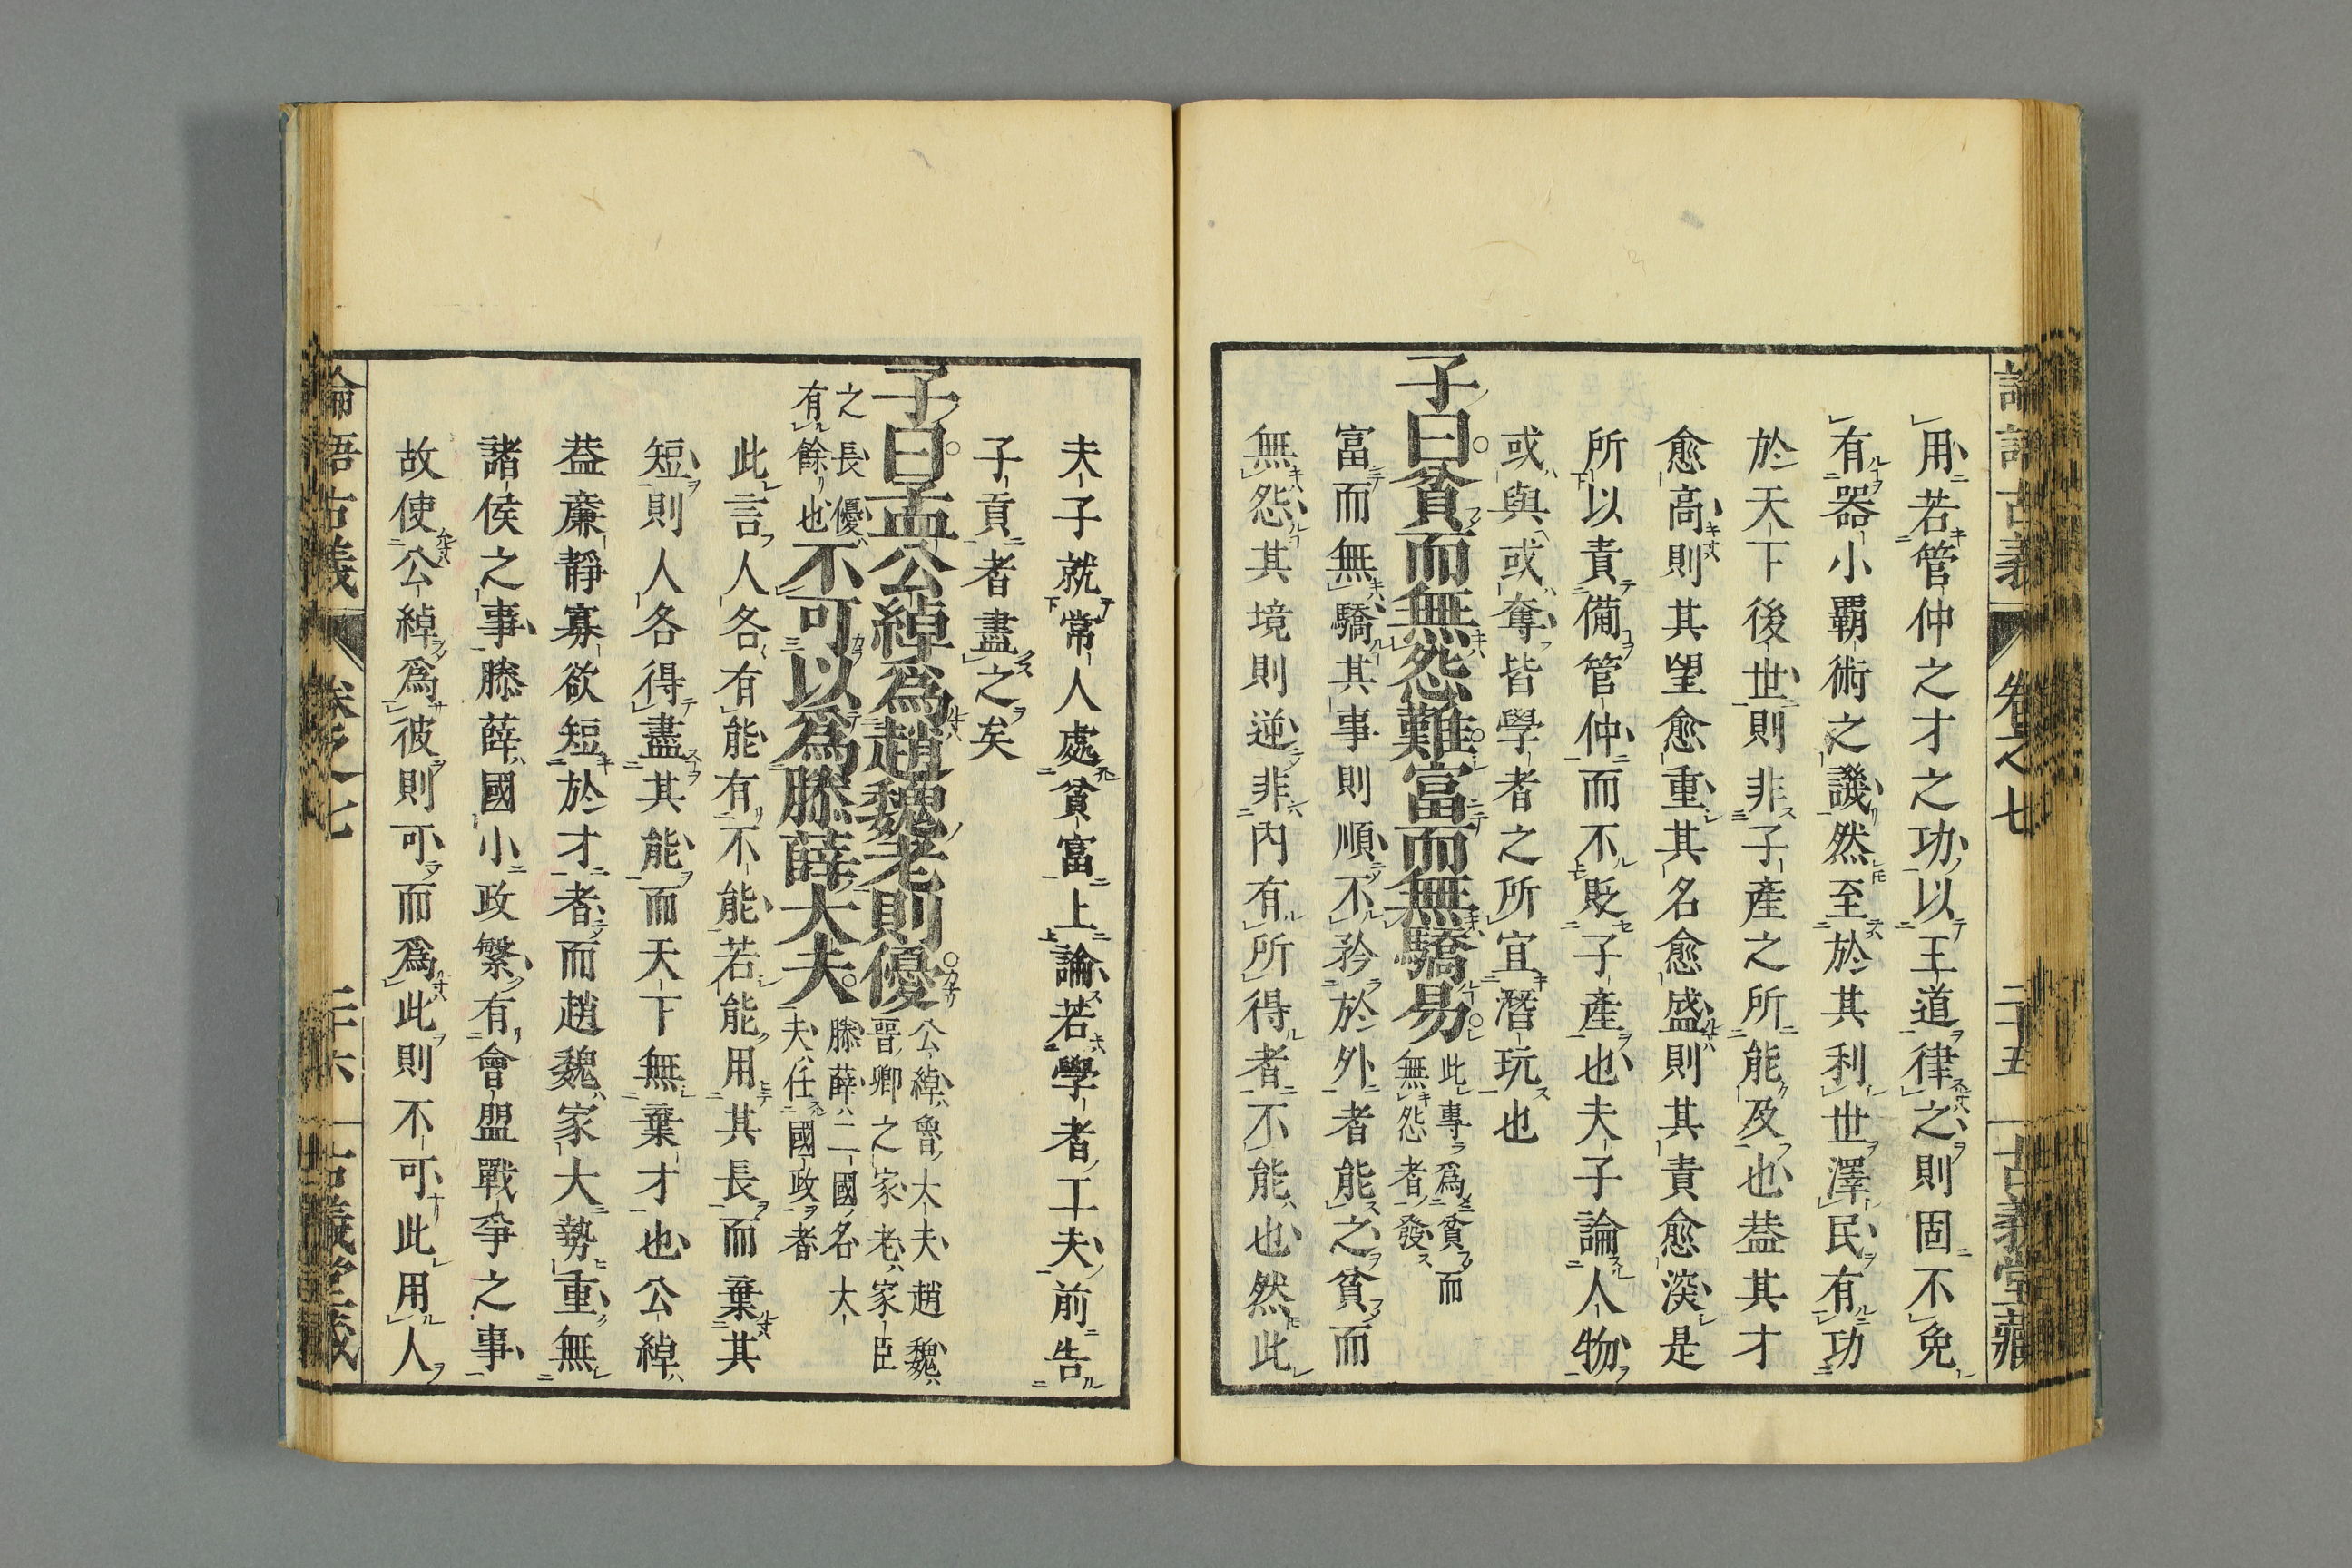 論語古義 卷之七 二十五 古義堂藏
用若管仲之才之功以王道律之則固不免
有器小霸術之譏然至於其利世澤民有功
於天下後世則非子產之所能及也葢其才
愈高則其望愈重其名愈盛則其責愈深是
所以責備管仲而不貶子產也夫子論人物
或與或奪皆學者之所宜潛玩也
子曰貧而無怨難富而無驕易此專爲貧而
無怨者發
富而無驕其事則順不矜於外者能之貧而
無怨其境則逆非內有所得者不能也然此
夫子就常人處貧富上論若學者工夫前告
子貢者盡之矣
子曰孟公綽爲趙魏老則優公綽魯大夫趙魏
晉卿之家老家臣
之長優
有餘也不可以爲滕薛大夫滕薛二國名大
夫任國政者
此言人各有能有不能若能用其長而棄其
短則人各得盡其能而天下無棄才也公綽
葢廉靜寡欲短於才者而趙魏家大勢重無
諸侯之事滕薛國小政繁有會盟戰爭之事
故使公綽爲彼則可而爲此則不可此用人
論語古義 卷之七 二十六 古義堂藏